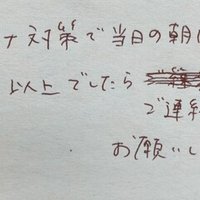 ナ対策で当日の朝
以上でしたら
ご連絡
お願いし